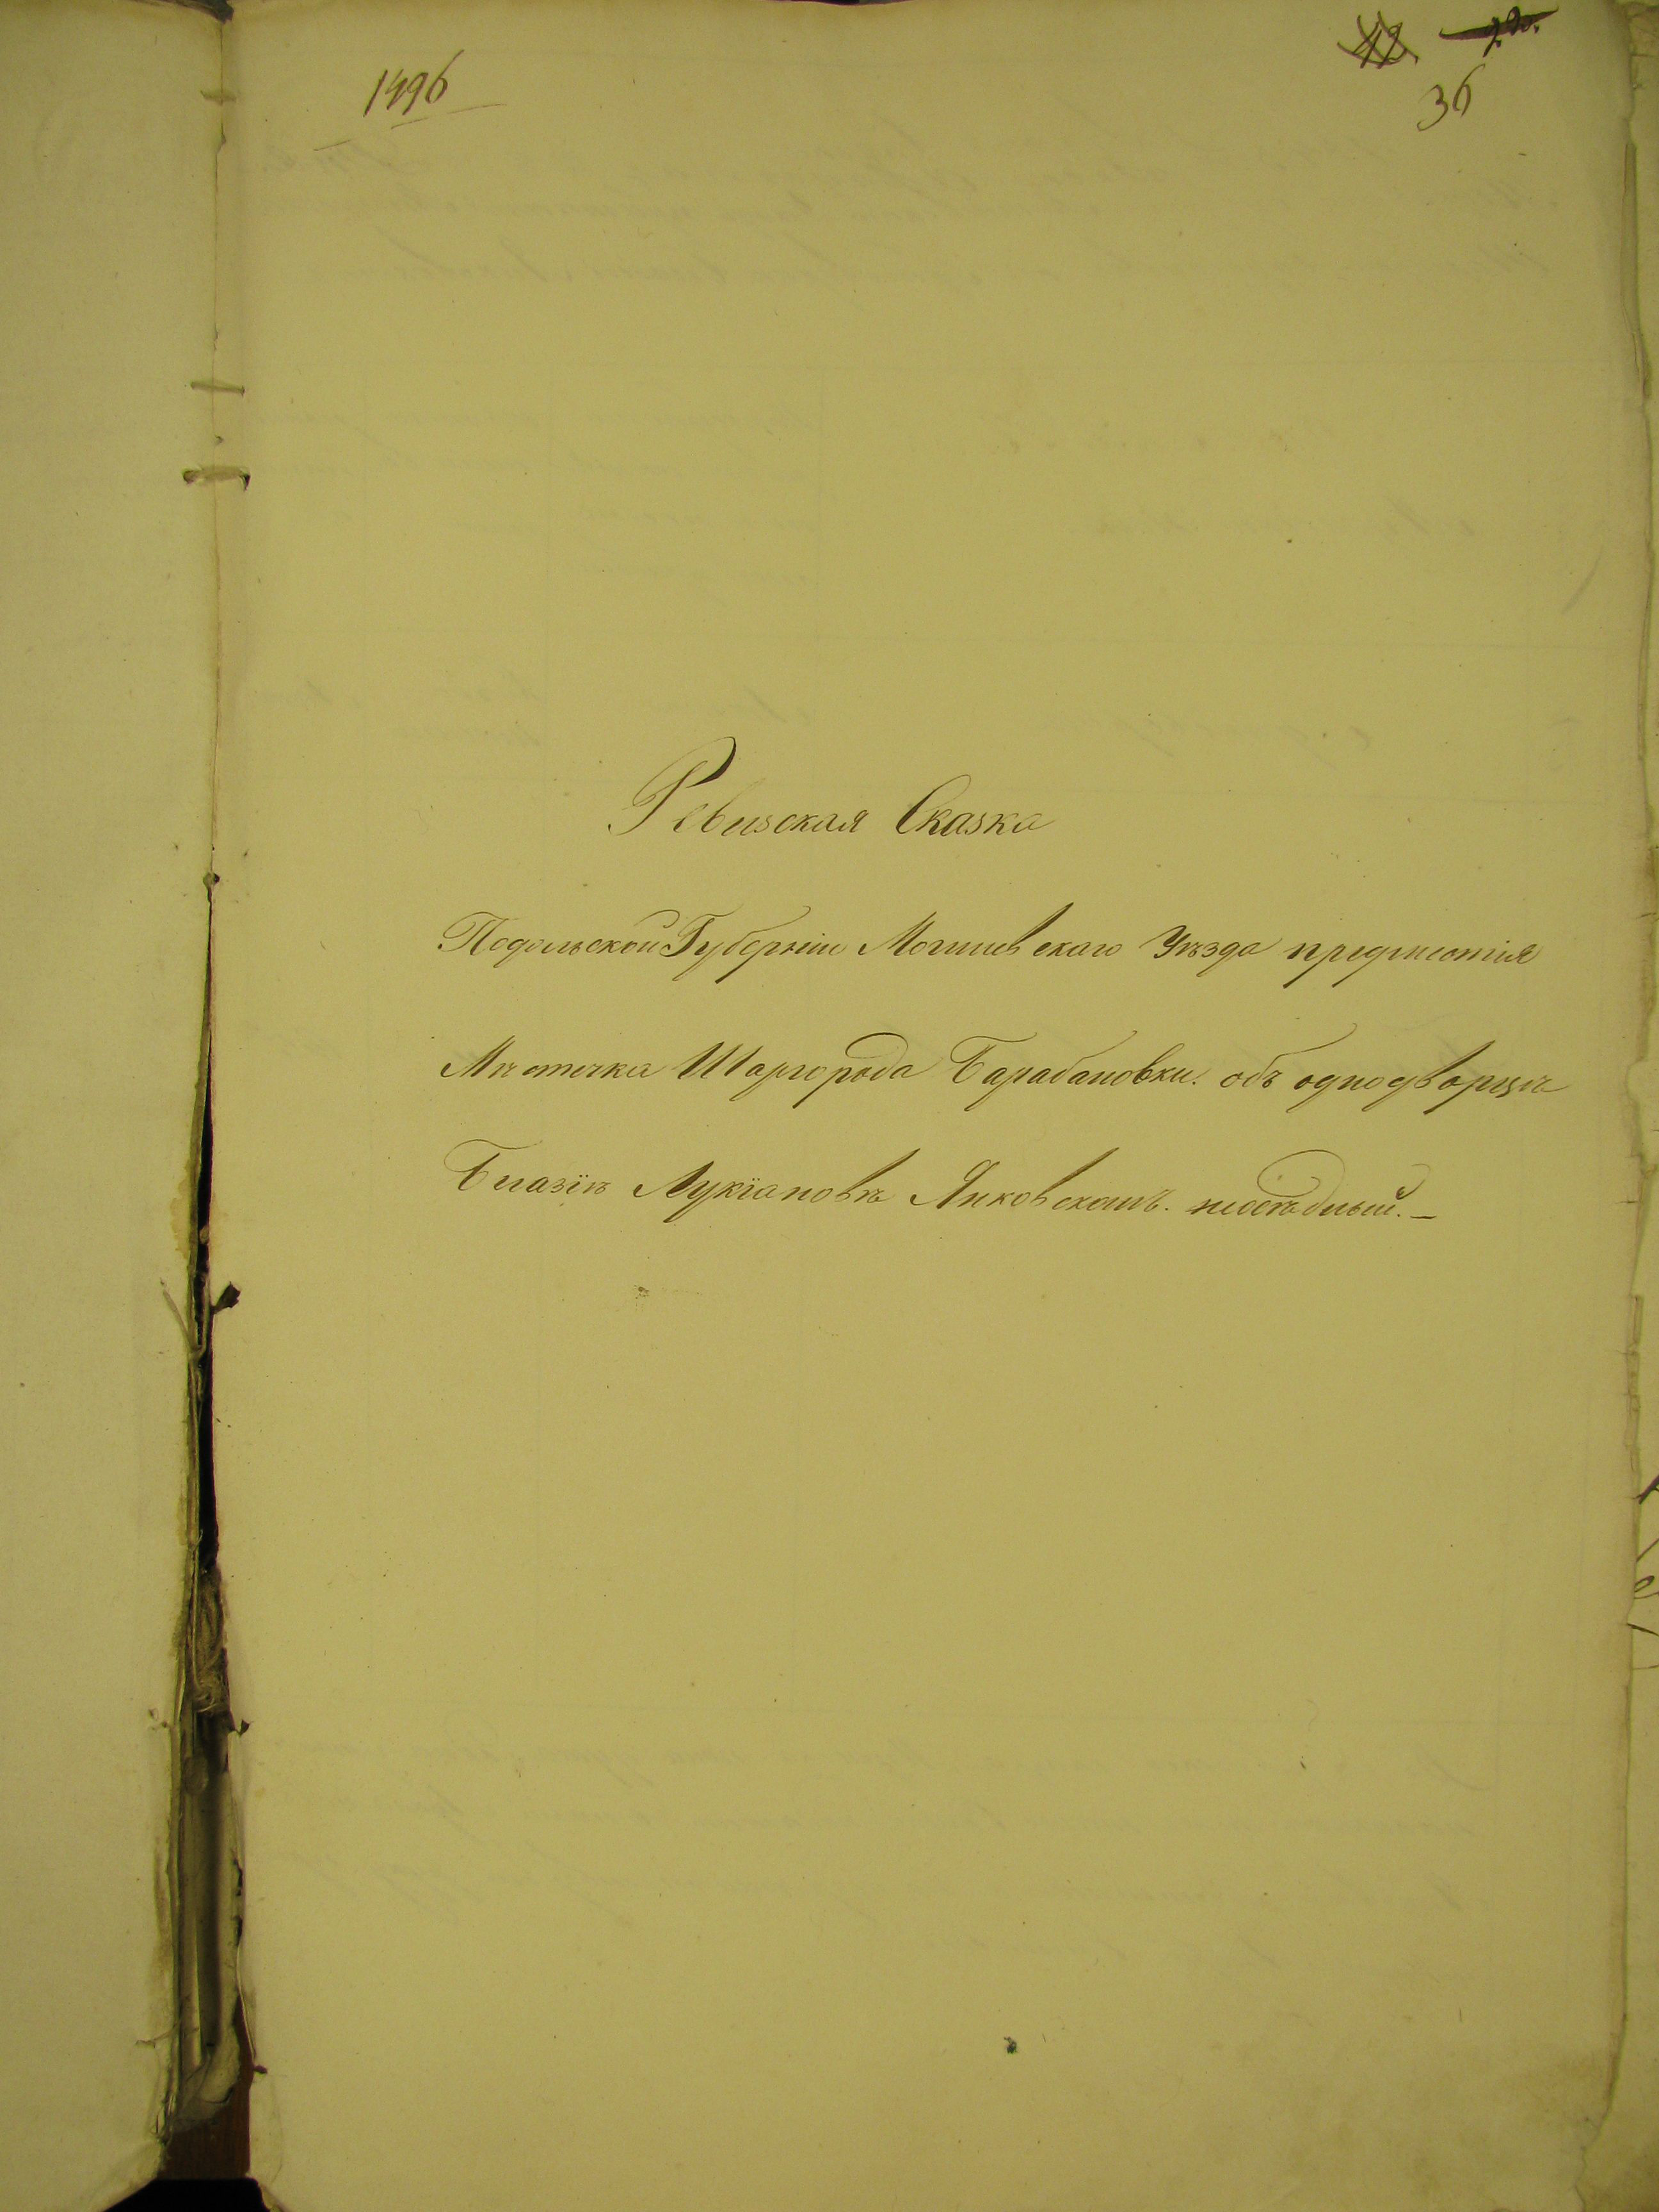 1496
36
Ревизская Сказка
Подольской Губерніи Могилевскаго Уѣзда предмѣстія
Мѣстечка Шаргорода Барабановки. объ однодворцѣ
Блазіѣ Лукіановѣ Янковскомъ. неосѣдлый. —